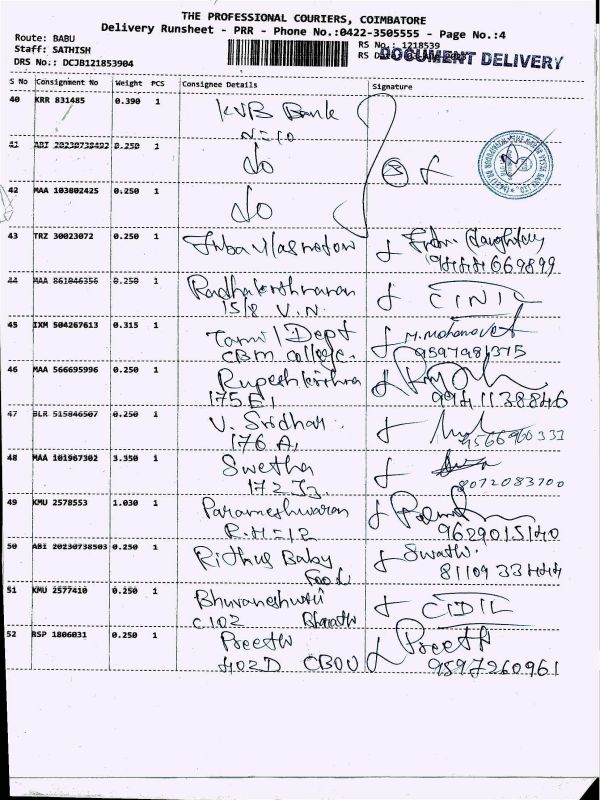 THE PROFESSIONAL COURIERS, COIMBATORE
Delivery Runsheet - PRR - Phone No.:0422-3505555 - Page No.:4
Route: BABU
Staff: SATHISH
DRS No.: DCJB121853904
RS No.: 1218539
RS Date
DOCUMENT DELIVERY
S No Consignment No Weight PCS Consignee Details Signature
40 KRR 831485 0.390 1 KVB Bank
41 ABI 20230738492 0.250 1 do
42 MAA 103802425 0.250 1 do
43 TRZ 30023072 0.250 1
669899
44 MAA 861046356 0.250 1 Radhakrishnanan
15/8 V.N. CINIL
45 IXM 504267613 0.315 1 Tamil Dept M. Mohanove
CBM college. 9597981375
46 MAA 566695996 0.250 1 Rupeshkrishna
175 E1 9941138846
47 BLR 515846507 0.250 1 V. Sridhar
176 A1 9566966333
48 MAA 101967302 3.350 1 Swetha
172 J3 8072083700
49 KMU 2578553 1.030 1 Parameshwaran
R.H=12 9629015140
50 ABI 20230738503 0.250 1 Rithus Baby Swathi
Food 8110933444
51 KMU 2577410 0.250 1 Bhuvaneshwari
C102 Bharathi CIDIL
52 RSP 1806031 0.250 1 Preethi Preethi
402D CBOU 9597260961